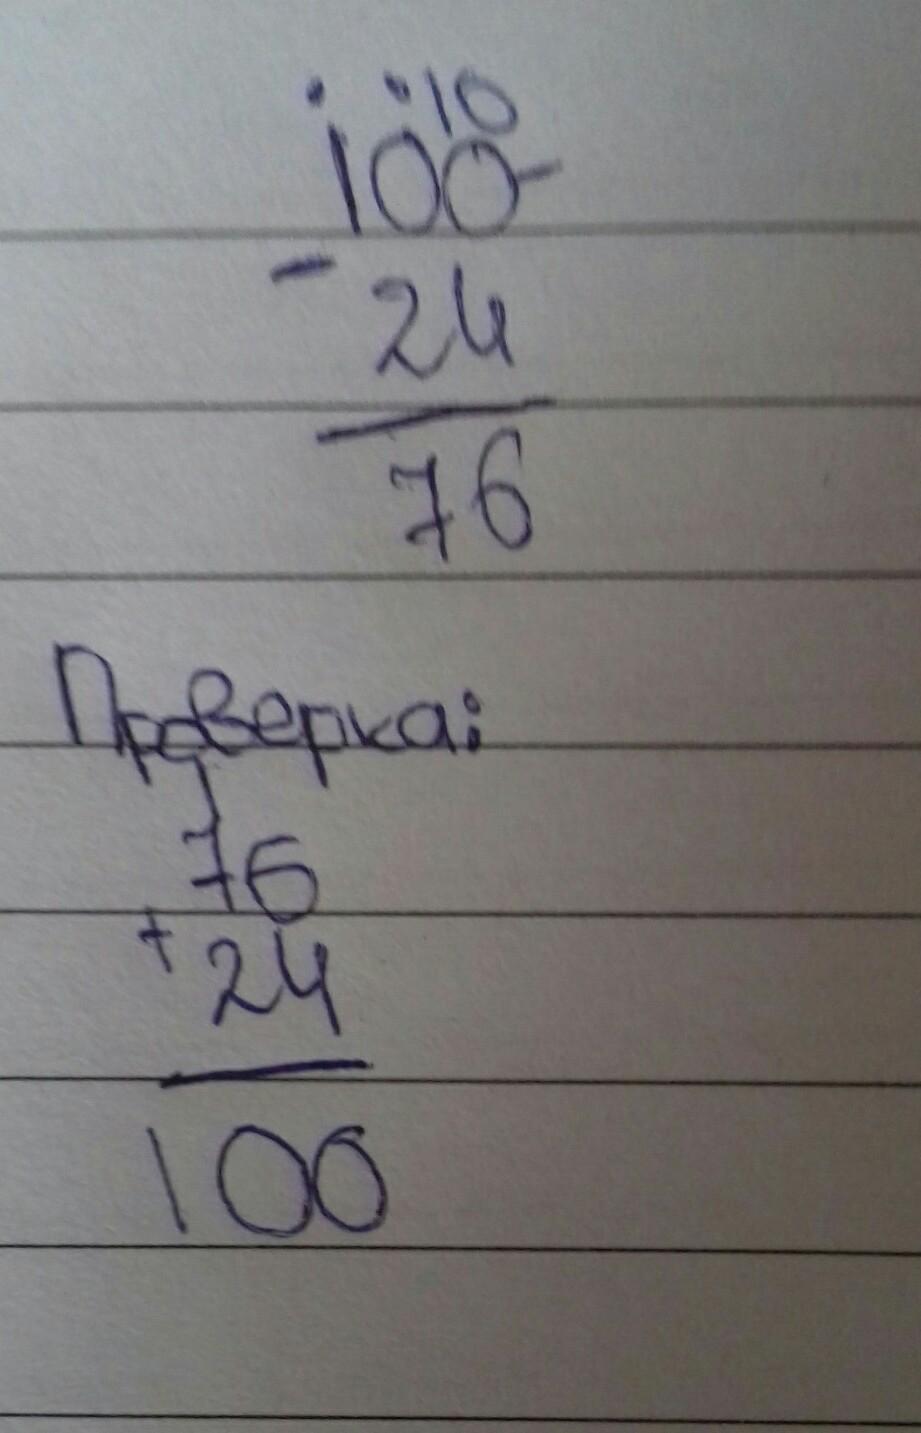 . . 10
100-
- 24
76
Проверка:
76
+ 24
100